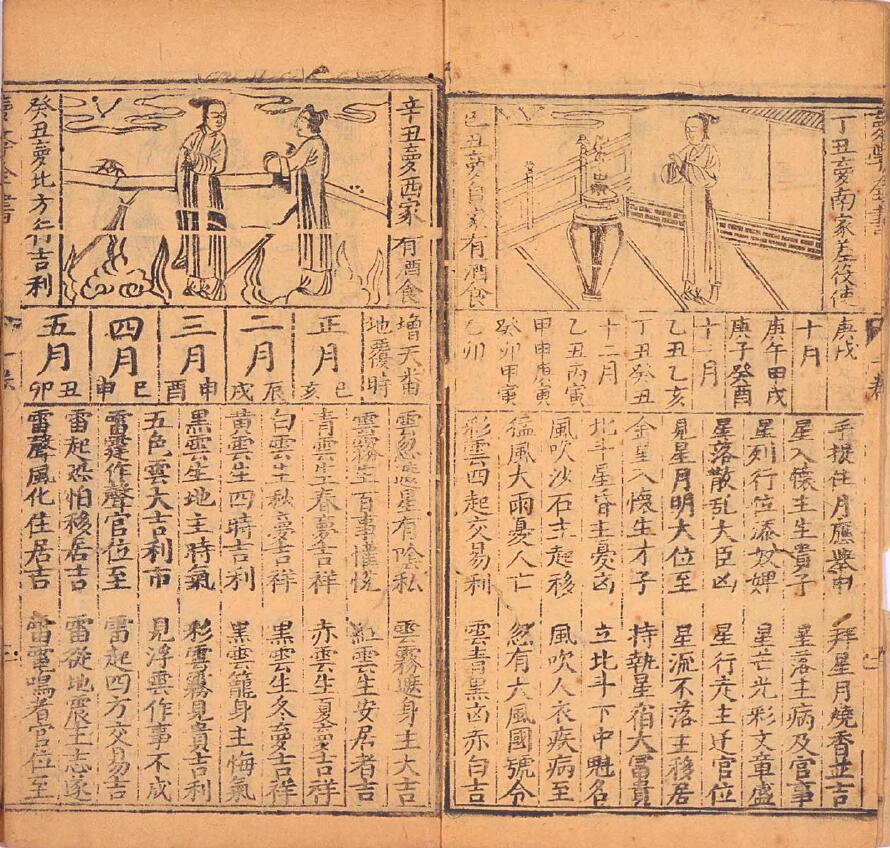 丁丑夢南家差役使
丑夢
家有酒食
庚戌
十月
庚午田戌
庚子癸酉
十一月
乙丑乙亥
丁丑癸丑
十二月
乙丑丙寅
甲申庚寅
癸卯甲寅
乙卯
手捉住月應舉中 拜星月燒香並吉
星入懷主生貴子 星落主病及官事
星列行位添奴婢 星芒光彩文章盛
星落散乱大臣凶 星行走主迁官位
見星月明大位至 星流不落主移居
金星入懷生才子 持執星宿大冨貴
北斗星昏主憂凶 立北斗下中魁名
風吹沙石主起移 風吹人衣疾病至
猛風大雨憂人亡 忽有大風國號令
彩雲四起交易利 雲青黑凶赤白吉
辛丑夢西家有酒食
癸丑夢北方 吉利
增天番
地覆時
正月
巳
亥
二月
辰
戌
三月
申
酉
四月
巳
申
五月
丑
卯
雲忽 星有陰私 雲霧遮身主大吉
雲霧生百事懽悅 紅雲生安居者吉
青雲生春夢吉祥 赤雲生夏夢吉祥
白雲生秋夢吉祥 黑雲生冬夢吉祥
黃雲生四時吉利 黑雲籠身主悔氣
黑雲生地主時氣 彩雲霧見貴吉利
五色雲大吉利市 見浮雲作事不成
雷霆作聲官位至 雷起四方交易吉
雷起恐怕移居吉 雷從地震主志遂
雷聲風化住居吉 雷電鳴者官位至